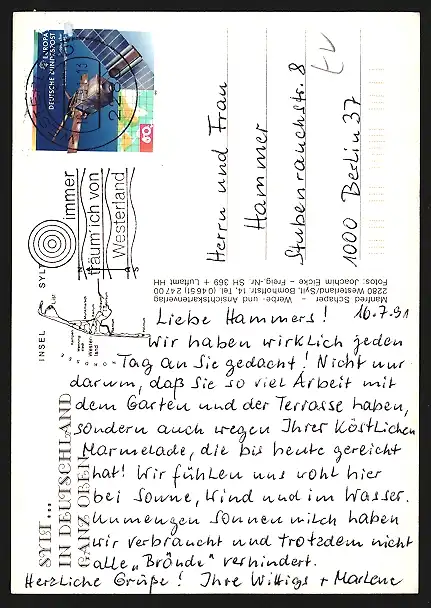 Liebe Hammers! 16.7.91
Wir haben wirklich jeden
Tag an Sie gedacht! Nicht nur
darum, daß Sie so viel Arbeit mit
dem Garten und der Terrasse haben,
sondern auch wegen Ihrer köstlichen
Marmelade, die bis heute gereicht
hat! Wir fühlen uns wohl hier
bei Sonne, Wind und im Wasser.
Unmengen Sonnenmilch haben
wir verbraucht und trotzdem nicht
alle „Brände" verhindert.
Herzliche Grüße! Ihre Wittigs + Marlene
Herrn und Frau
Hammer
Stubenrauchstr. 8
1000 Berlin 37
EUROPA
DEUTSCHE BUNDESPOST
60
INSEL SYLT
immer
träum' ich von
Westerland
SYLT...
IN DEUTSCHLAND
GANZ OBEN
Manfred Schaper – Werbe- und Ansichtskartenverlag
2280 Westerland/Sylt, Bomhoffstr. 14, Tel. (04651) 24700
Fotos: Joachim Eicke – Freig.-Nr. SH 369 + Luftamt HH